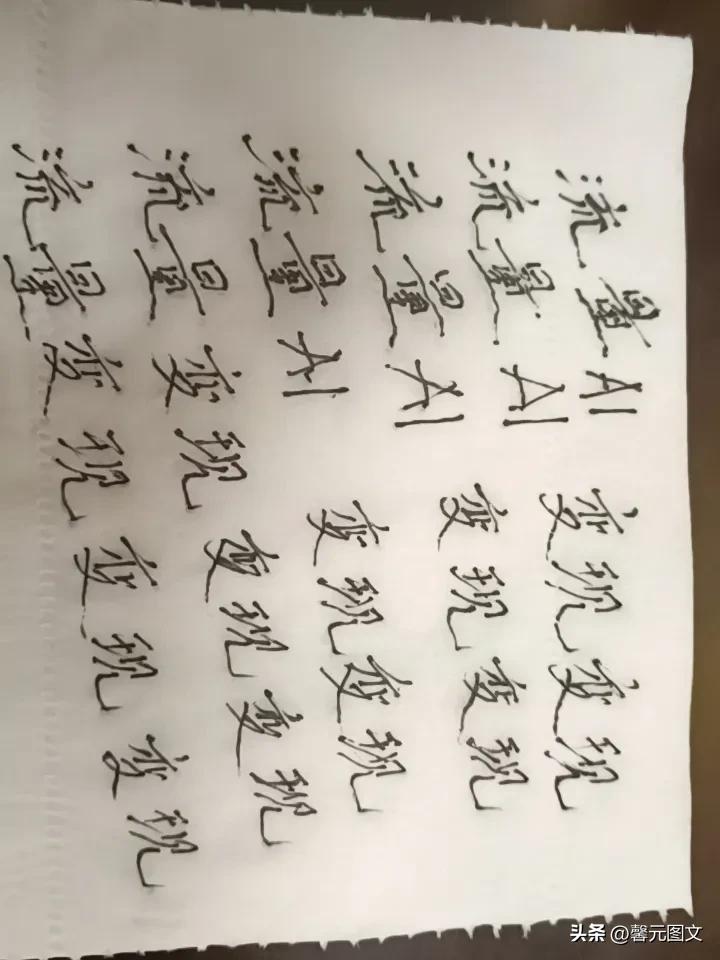 流量AI
流量AI 变现变现
流量AI 变现变现
流量AI 变现变现
流量变现变现变现
流量变现变现变现
头条 @馨元图文